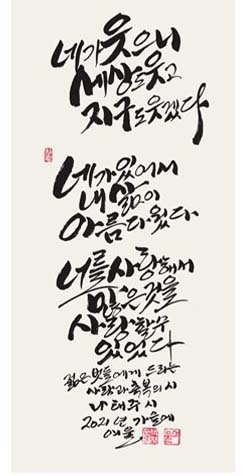 네가 웃으니
세상도 웃고
지구도 웃겠다
네가 있어서
내 삶이
아름다웠다
너를 사랑해서
많은 것을
사랑할 수
있었다
젊은 벗들에게 드리는
사랑과 축복의 시
나태주 시
2021년 가을에